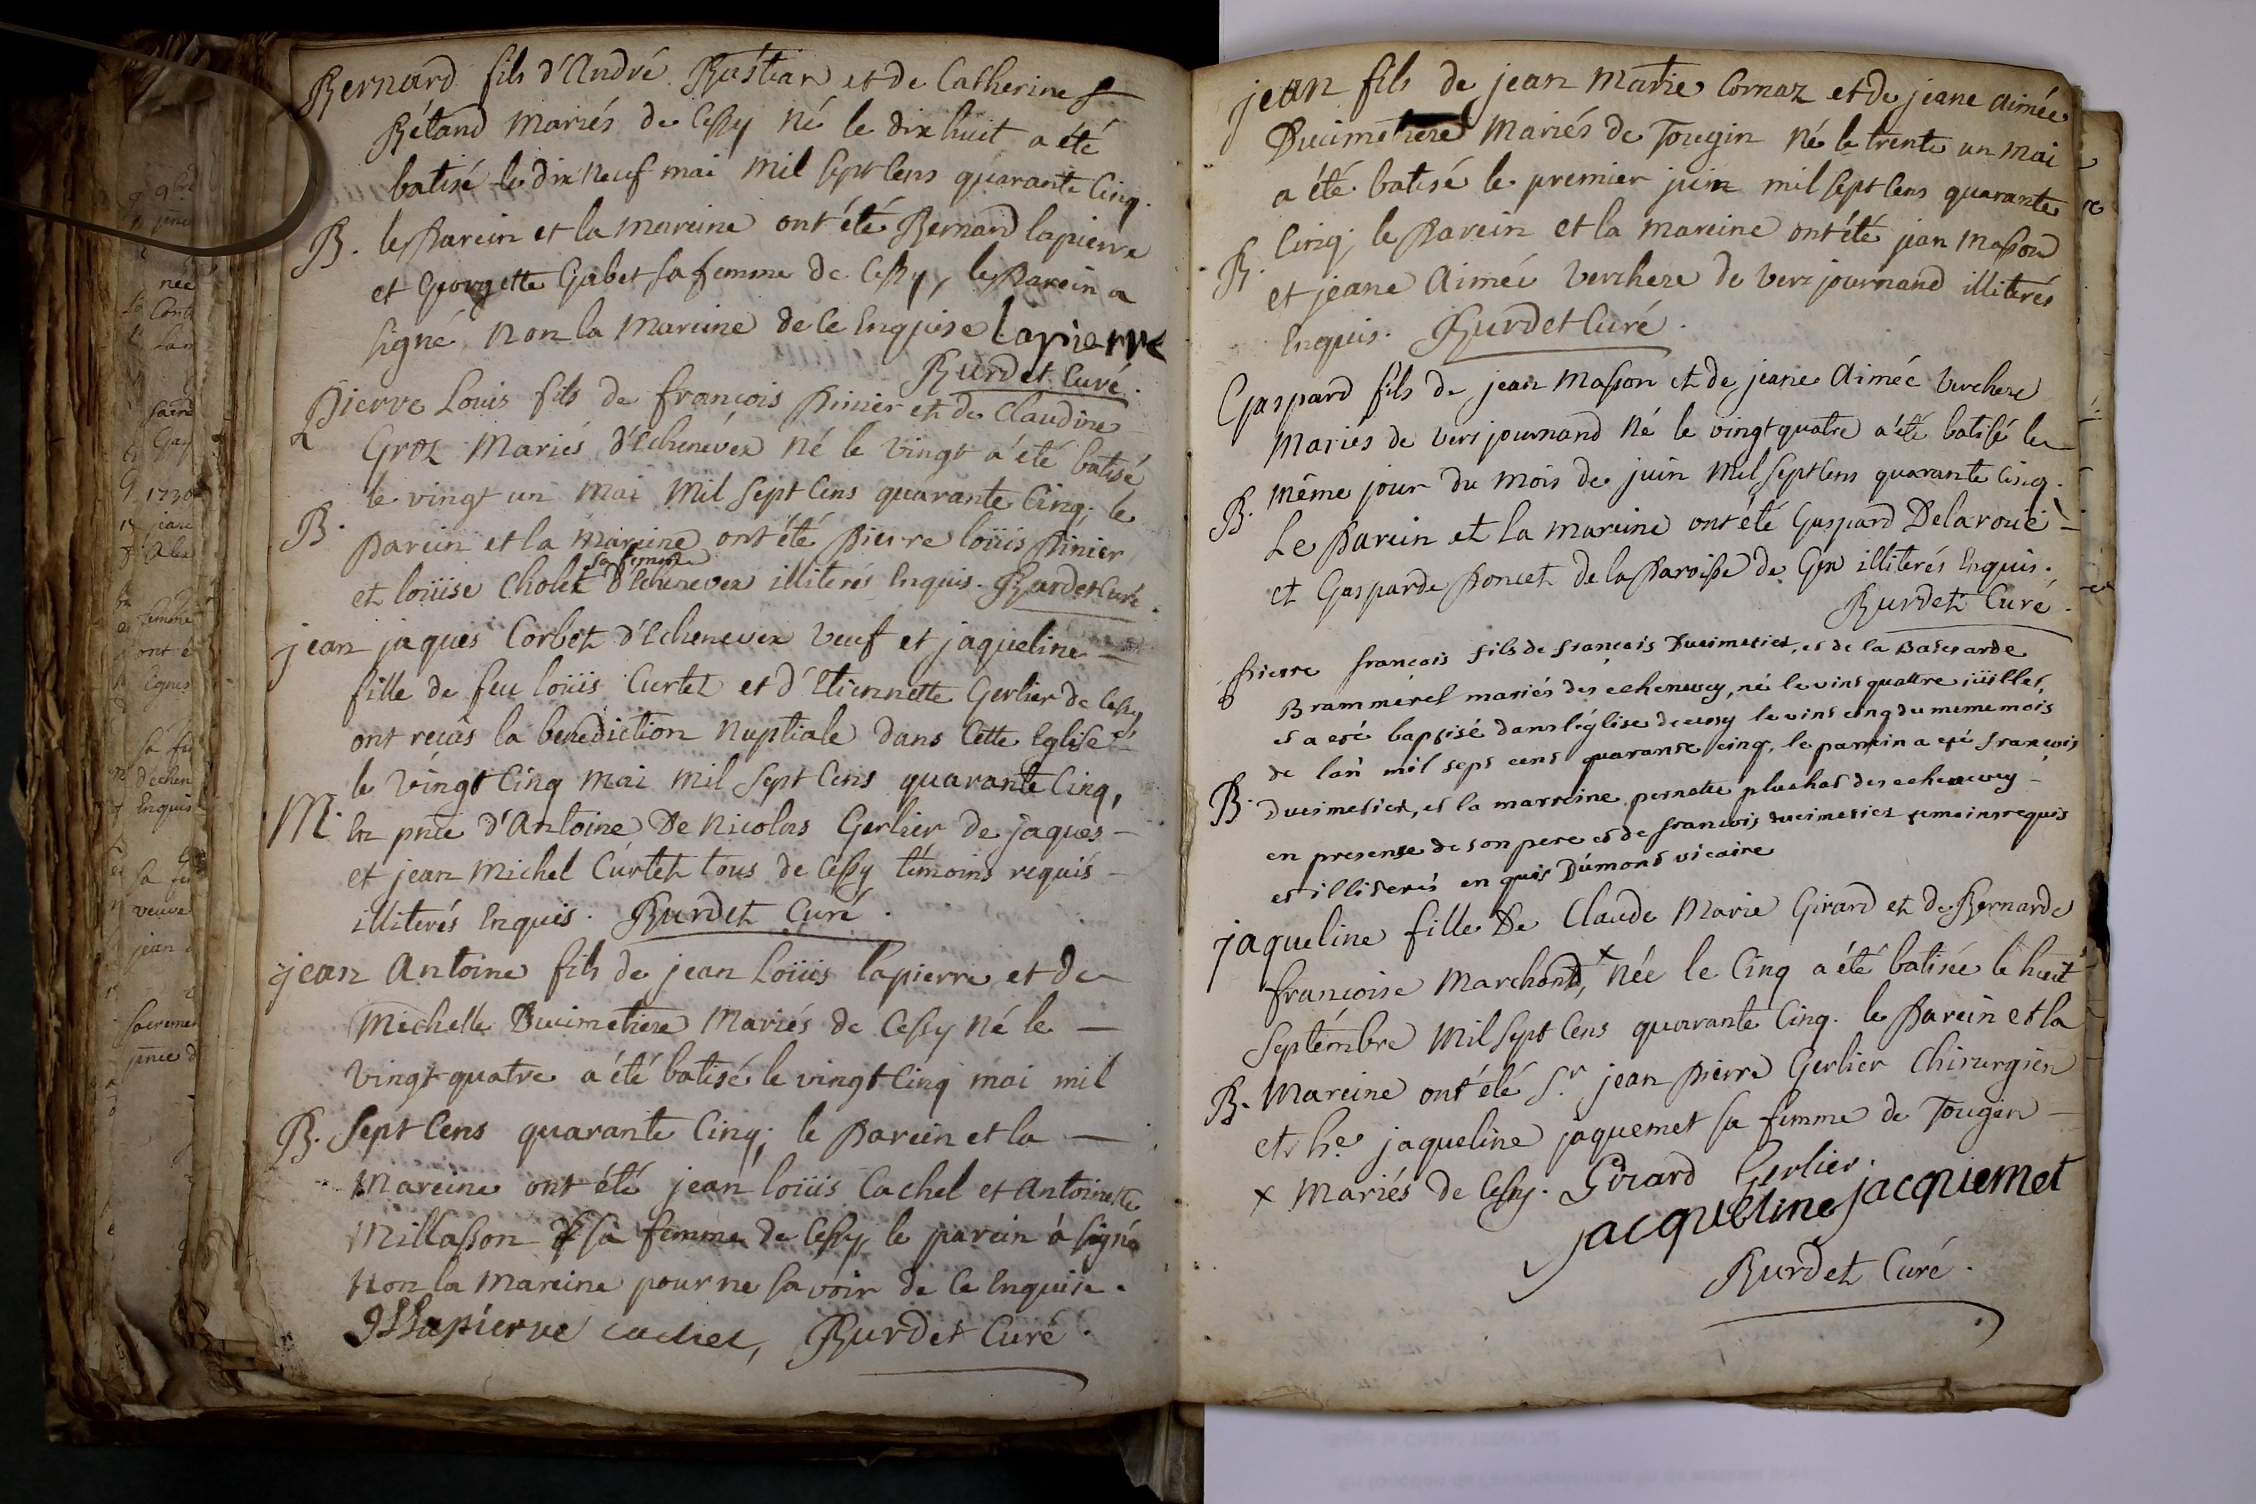 Bernard fils d'André Bastian et de Catherine
Bétand mariés de Cessy né le dix huit a été
batisé le dix neuf mai mil sept cens quarante cinq.
B. le parein et la mareine ont été Bernard lapierre
et Georgette Gabet sa femme de Cessy, le parein a
signé non la mareine de ce enquise lapierre
Burdet curé.
Pierre Louis fils de françois Pinier et de Claudine
Groz mariés d'Echenévex né le vingt a été batisé
le vingt un mai mil sept cens quarante cinq; le
B. parein et la mareine ont été pierre loüis Pinier
sa femme
et loüise Cholet d'Echenevex illiterés enquis. Burdet curé.
jean jaques Corbet d'Echenevex veuf et jaqueline
fille de feu loüis Curtet et d'Etiennette Gerlier de Cessy
ont reçus la benediction nuptiale dans cette Eglise
le vingt cinq mai mil sept cens quarante cinq,
M. en pnce d'Antoine De Nicolas Gerlier de jaques
et jean michel Curtet tous de Cessy témoins requis
illiterés enquis. Burdet curé.
jean Antoine fils de jean Loüis lapierre et de
Michelle Ducimetiere mariés de Cessy né le
vingt quatre a été batisé le vingt cinq mai mil
B. sept cens quarante cinq; le parein et la
mareine ont été jean loüis Cachet et Antoinette
Millasson sa femme de Cessy, le parein a signé
non la mareine pour ne savoir de ce enquise.
JLLapierre cachet, Burdet curé.
jean fils de jean Marie Cornaz et de jeane aimée
Ducimetiere mariés de Tougin né le trente un mai
a été batisé le premier juin mil sept cens quarante
B. cinq; le parein et la mareine ont été jean masson
et jeane Aimée Verchere de vers journand illiterés
enquis. Burdet curé.
Gaspard fils de jean masson et de jeane Aimée Verchere
mariés de vers journand né le vingt quatre a été batisé le
B. même jour du mois de juin mil sept cens quarante cinq.
Le parein et la mareine ont été Gaspard Delarouë
et Gasparde Poncet de la paroisse de Gex illiterés enquis.
Burdet curé.
pierre francois fils de francois Ducimetier, et de la
Brammerel mariés des echenevey, né le vint quattre iüillet,
et a eté baptisé dans l'église de cessy le vint cinq du meme mois
de lan mil sept cens quarante cinq, le parrein a eté francois
B. ducimetier, et la marreine pernette pluchat des echenevey
en presense de son pere et de francois ducimetier temoins requis
et illiterés en quis Dumont vicaire
jaqueline fille De Claude Marie Girard et de Bernarde
françoise Marchand, x née le cinq a été batisée le huit
septembre mil sept cens quarante cinq. le parein et la
B. mareine ont été Sr. jean pierre Gerlier Chirurgien
et he. jaqueline jaquemet sa femme de Tougin
x mariés de Cessy. Girard Gerlier.
jacqueline jacquemet
Burdet curé.